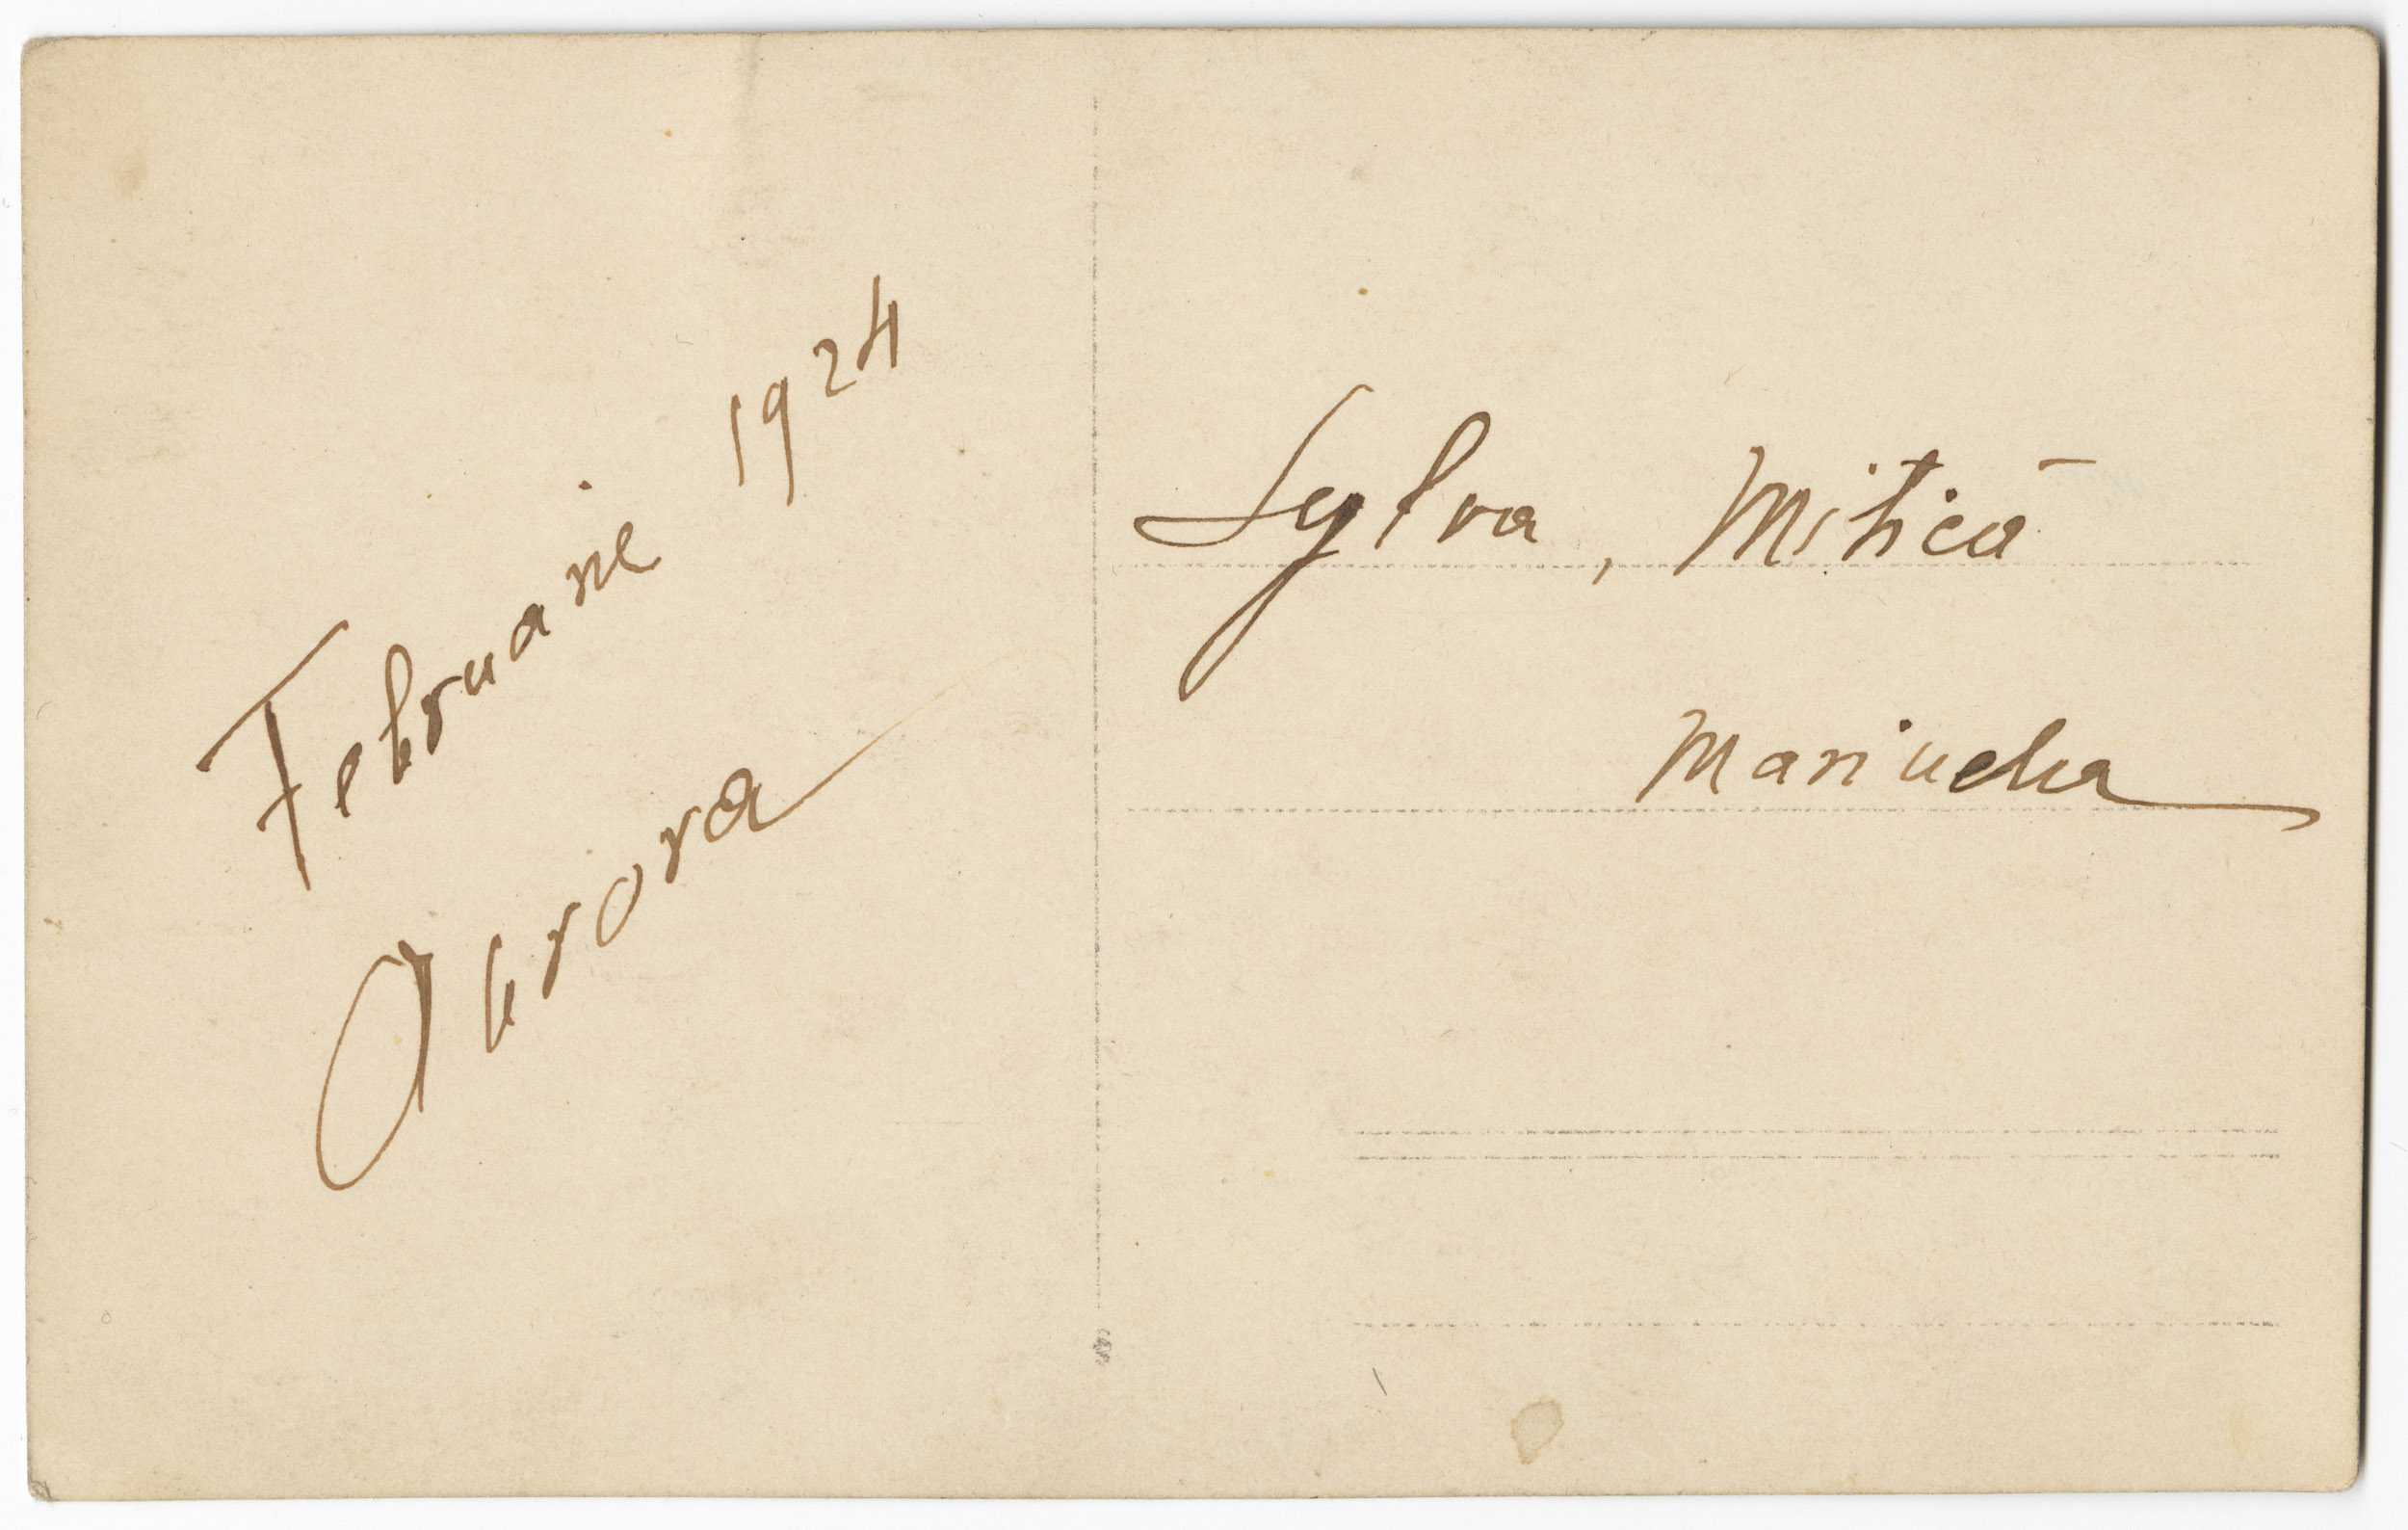 Februarie 1924
Obrova
Sylva, Mitică
Mariucha